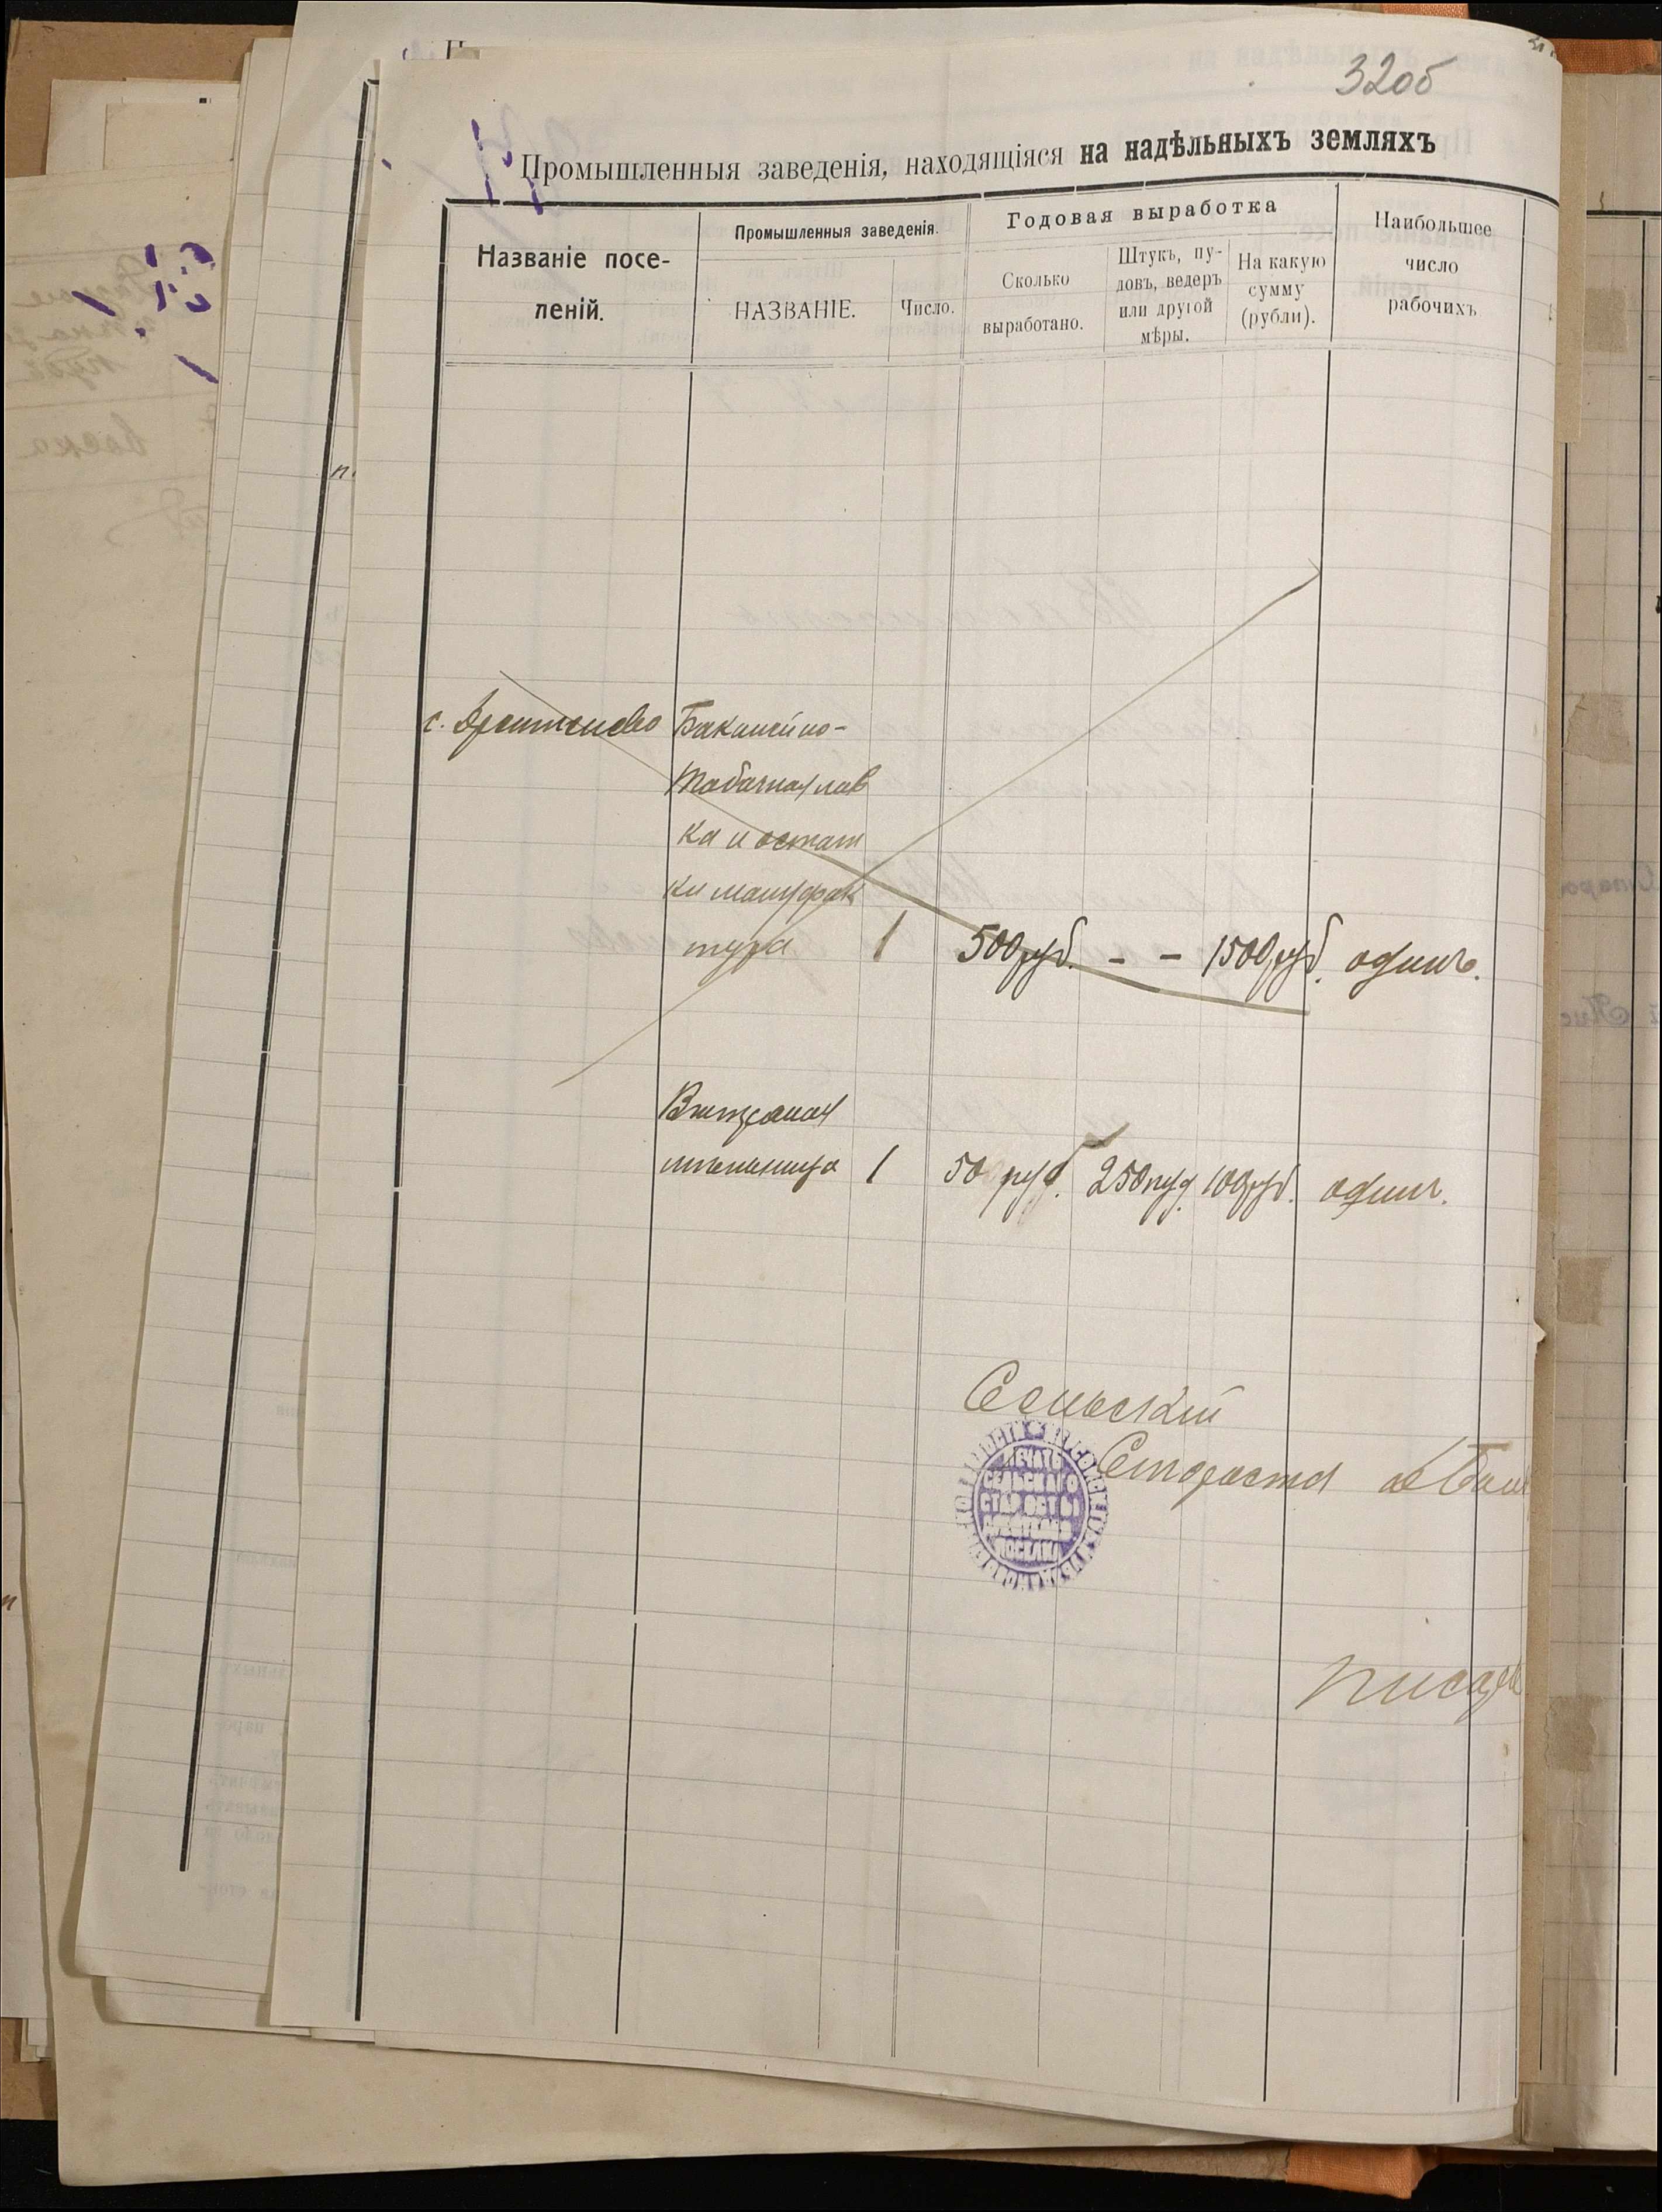 32об
Промышленныя заведенія, находящіяся на надѣльныхъ земляхъ
Названіе посе-
леній.
Промышленныя заведенія.
НАЗВАНІЕ.
Число.
Годовая выработка
Сколько
выработано.
Штукъ, пу-
довъ, ведеръ
или другой
мѣры.
На какую
сумму
(рубли).
Наибольшее
число
рабочихъ
с.
Бакалейно-
табачная лав
ка и остат
ки мануфак
тура 1 500 руб. - - 1500 руб. одинъ.
пшеница 1 50 руб. 250 пуд. 100 руб. одинъ.
Сельскій
Староста
ПЕЧАТЬ
СЕЛЬСКАГО
СТАРОСТЫ
ПОСЕЛКА
Писарь